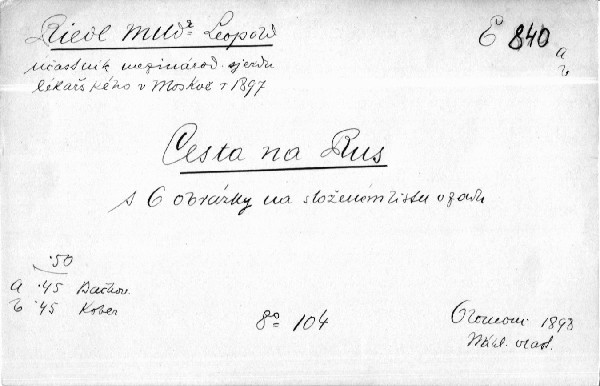 Riedl MUDr Leopold
E 840 a
b
účastník mezinárod. sjezdu
lékařského v Moskvě r 1897
Cesta na Rus
s 6 obrázky na složeném listu vzadu
·50
a ·45 Bačkov
b ·45 Kober
8o 104
Olomouc 1898
Nákl. vlast.